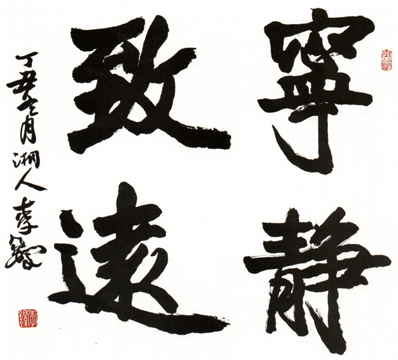 寧静
致遠
丁丑冬月湘人李鐸